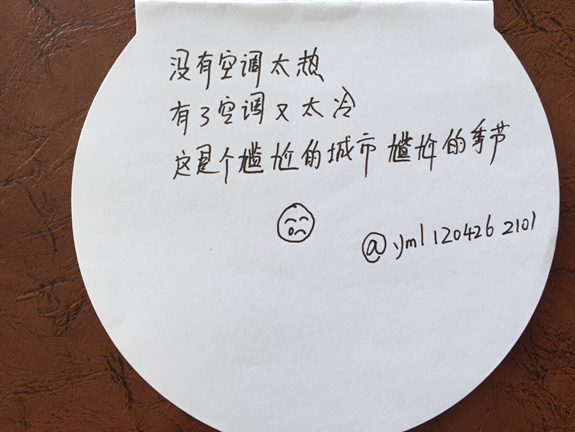 没有空调太热
有了空调又太冷
这是个尴尬的城市 尴尬的季节
@yml120426 2101